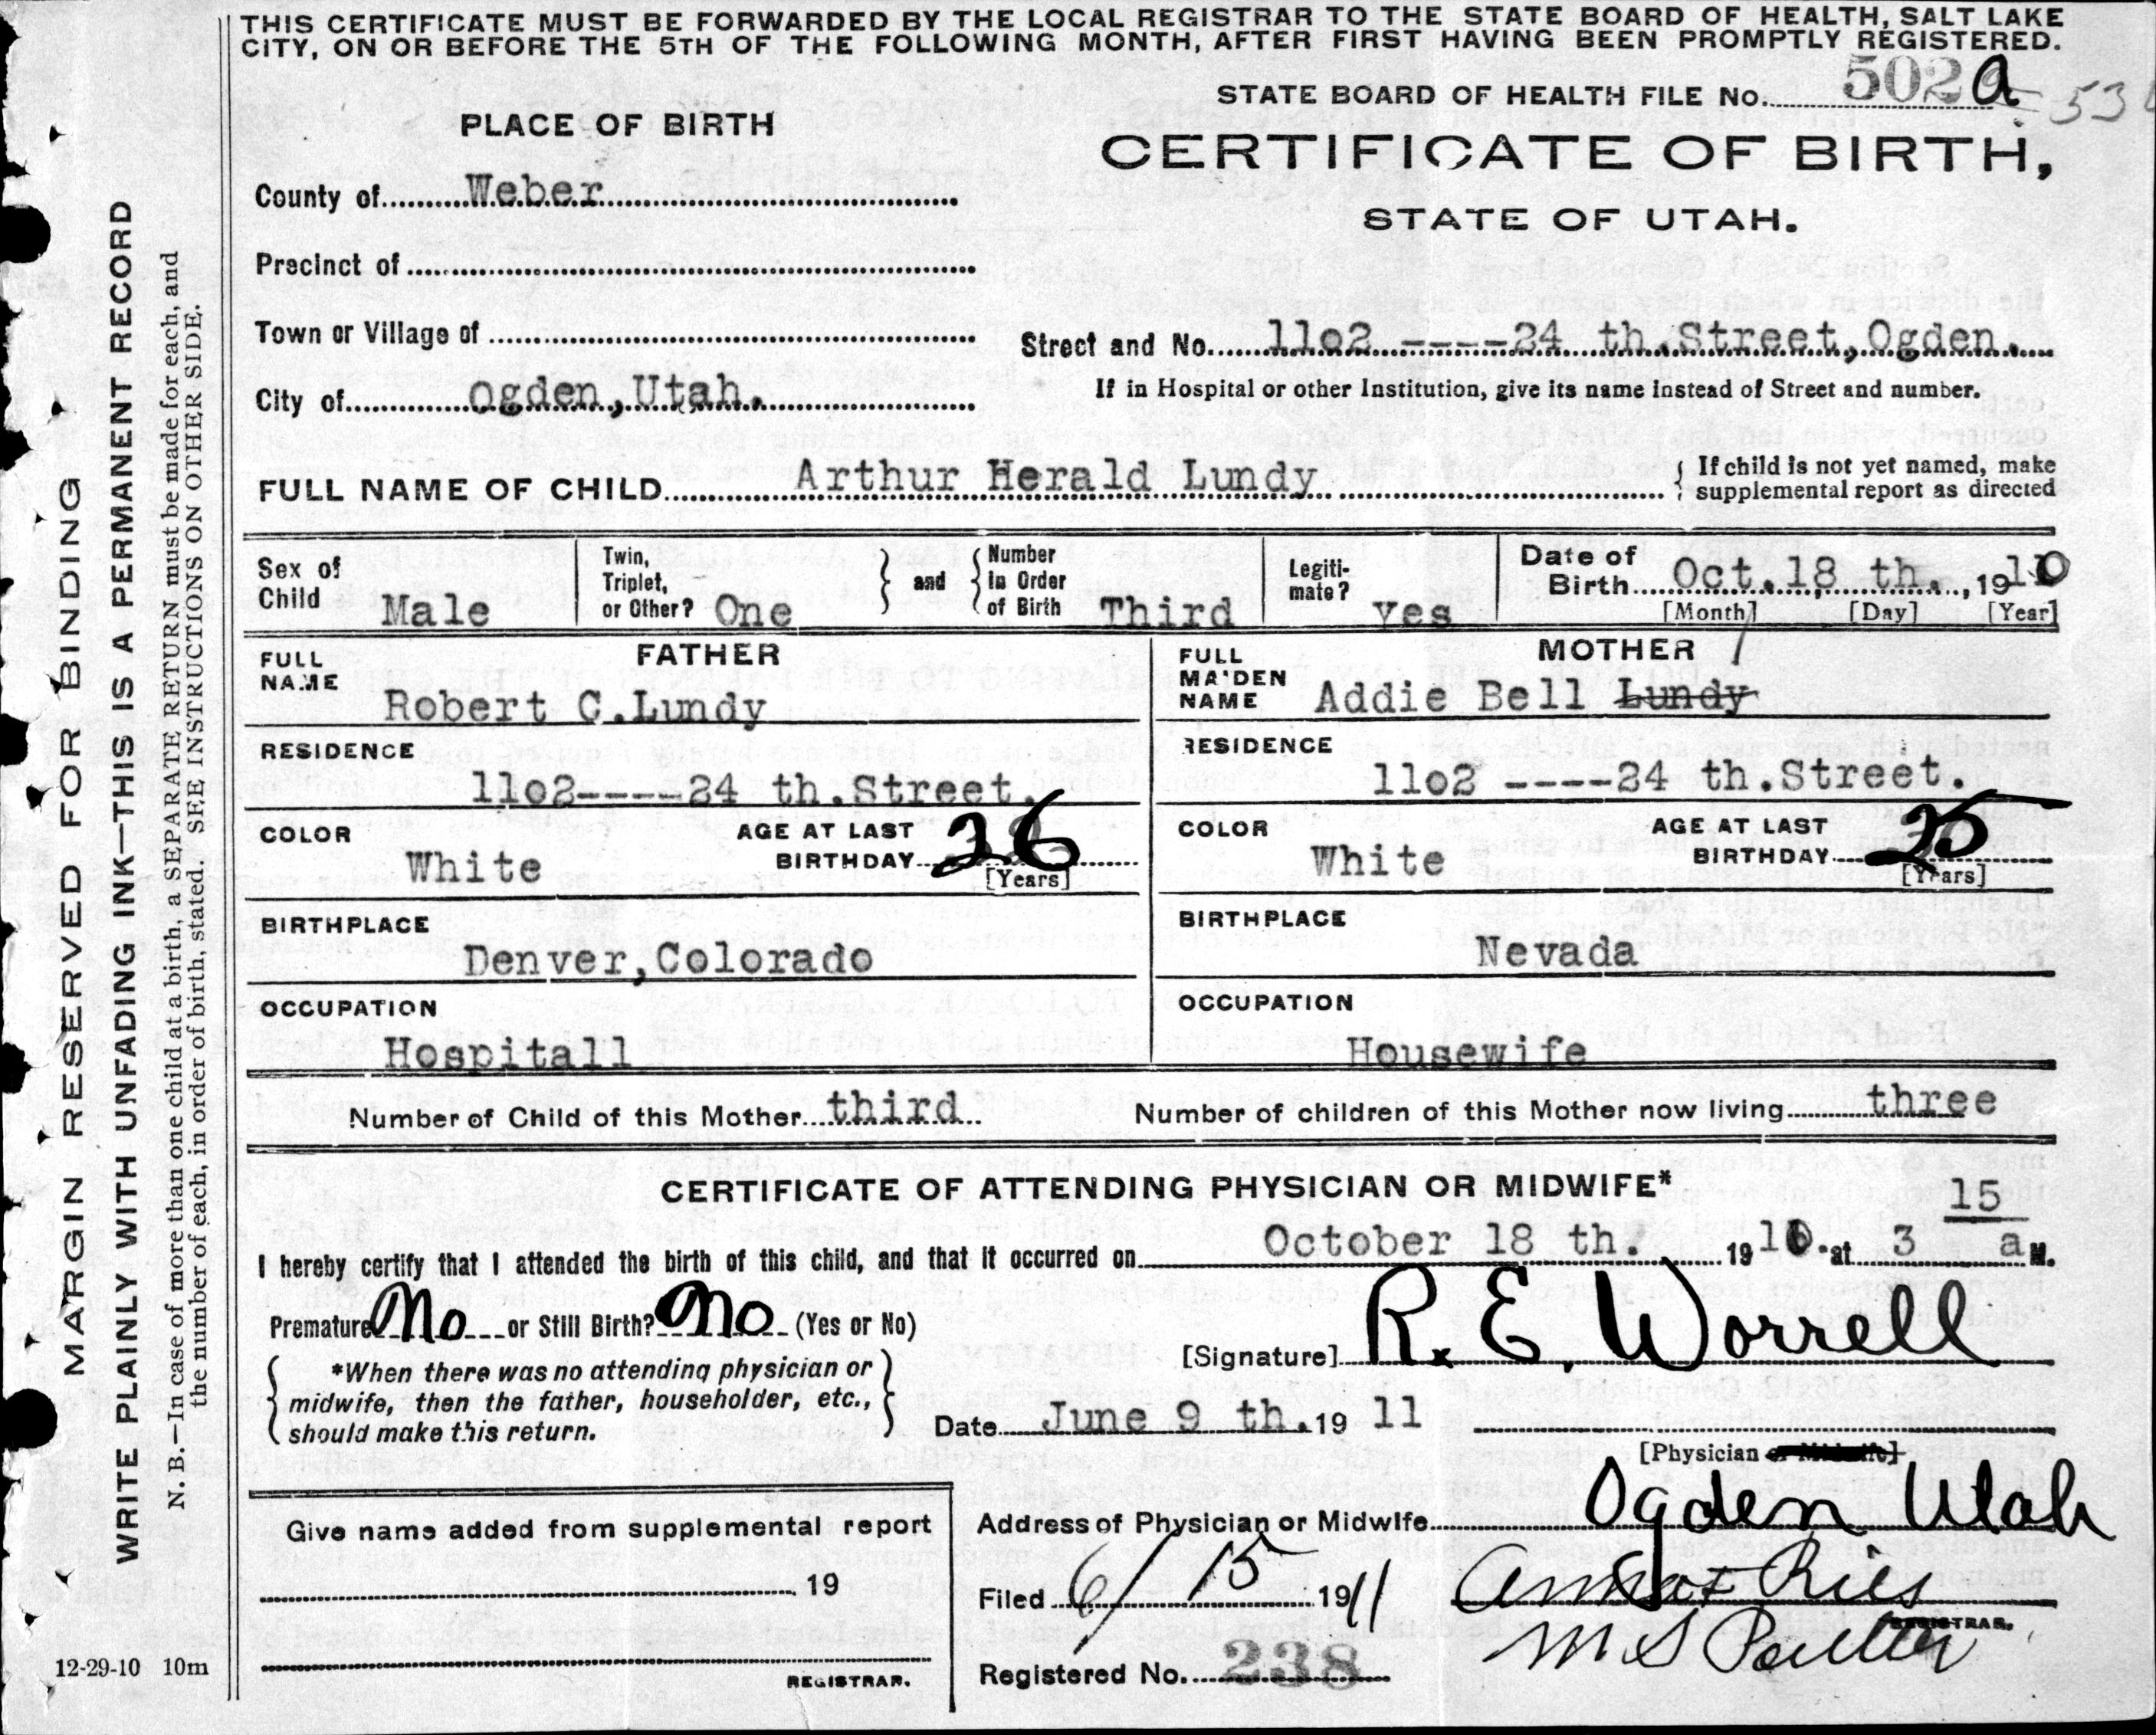 THIS CERTIFICATE MUST BE FORWARDED BY THE LOCAL REGISTRAR TO THE STATE BOARD OF HEALTH, SALT LAKE
CITY, ON OR BEFORE THE 5TH OF THE FOLLOWING MONTH, AFTER FIRST HAVING BEEN PROMPTLY REGISTERED.
STATE BOARD OF HEALTH FILE No. 502 a 53
PLACE OF BIRTH
CERTIFICATE OF BIRTH,
STATE OF UTAH.
County of Weber
Precinct of
Town or Village of
Street and No. 11o2 ----24 th.Street,Ogden.
City of Ogden,Utah.
If in Hospital or other Institution, give its name instead of Street and number.
FULL NAME OF CHILD Arthur Herald Lundy
{ If child is not yet named, make
supplemental report as directed
Sex of Child Male
Twin, Triplet, or Other? One
} and {
Number in Order of Birth Third
Legiti-mate? yes
Date of Birth Oct.18 th. , 1910
[Month] [Day] [Year]
FATHER
FULL NAME Robert C.Lundy
RESIDENCE
11o2----24 th.Street.
COLOR White
AGE AT LAST BIRTHDAY 26
[Years]
BIRTHPLACE
Denver,Colorado
OCCUPATION
Hospitall
MOTHER
FULL MAIDEN NAME Addie Bell Lundy
RESIDENCE
11o2 ----24 th.Street.
COLOR White
AGE AT LAST BIRTHDAY 25
[Years]
BIRTHPLACE
Nevada
OCCUPATION
Housewife
Number of Child of this Mother third
Number of children of this Mother now living three
CERTIFICATE OF ATTENDING PHYSICIAN OR MIDWIFE*
I hereby certify that I attended the birth of this child, and that it occurred on October 18 th. 1910. at 3 15 a M.
Premature No or Still Birth? No (Yes or No)
[Signature] R. E. Worrell
{ *When there was no attending physician or
midwife, then the father, householder, etc.,
should make this return. }
Date June 9 th. 19 11
[Physician or Midwife]
Give name added from supplemental report
19
REGISTRAR.
Address of Physician or Midwife Ogden Utah
Filed 6/15 1911
REGISTRAR.
Registered No. 238
MARGIN RESERVED FOR BINDING
WRITE PLAINLY WITH UNFADING INK—THIS IS A PERMANENT RECORD
N. B.—In case of more than one child at a birth, a SEPARATE RETURN must be made for each, and
the number of each, in order of birth, stated. SEE INSTRUCTIONS ON OTHER SIDE.
12-29-10 10m